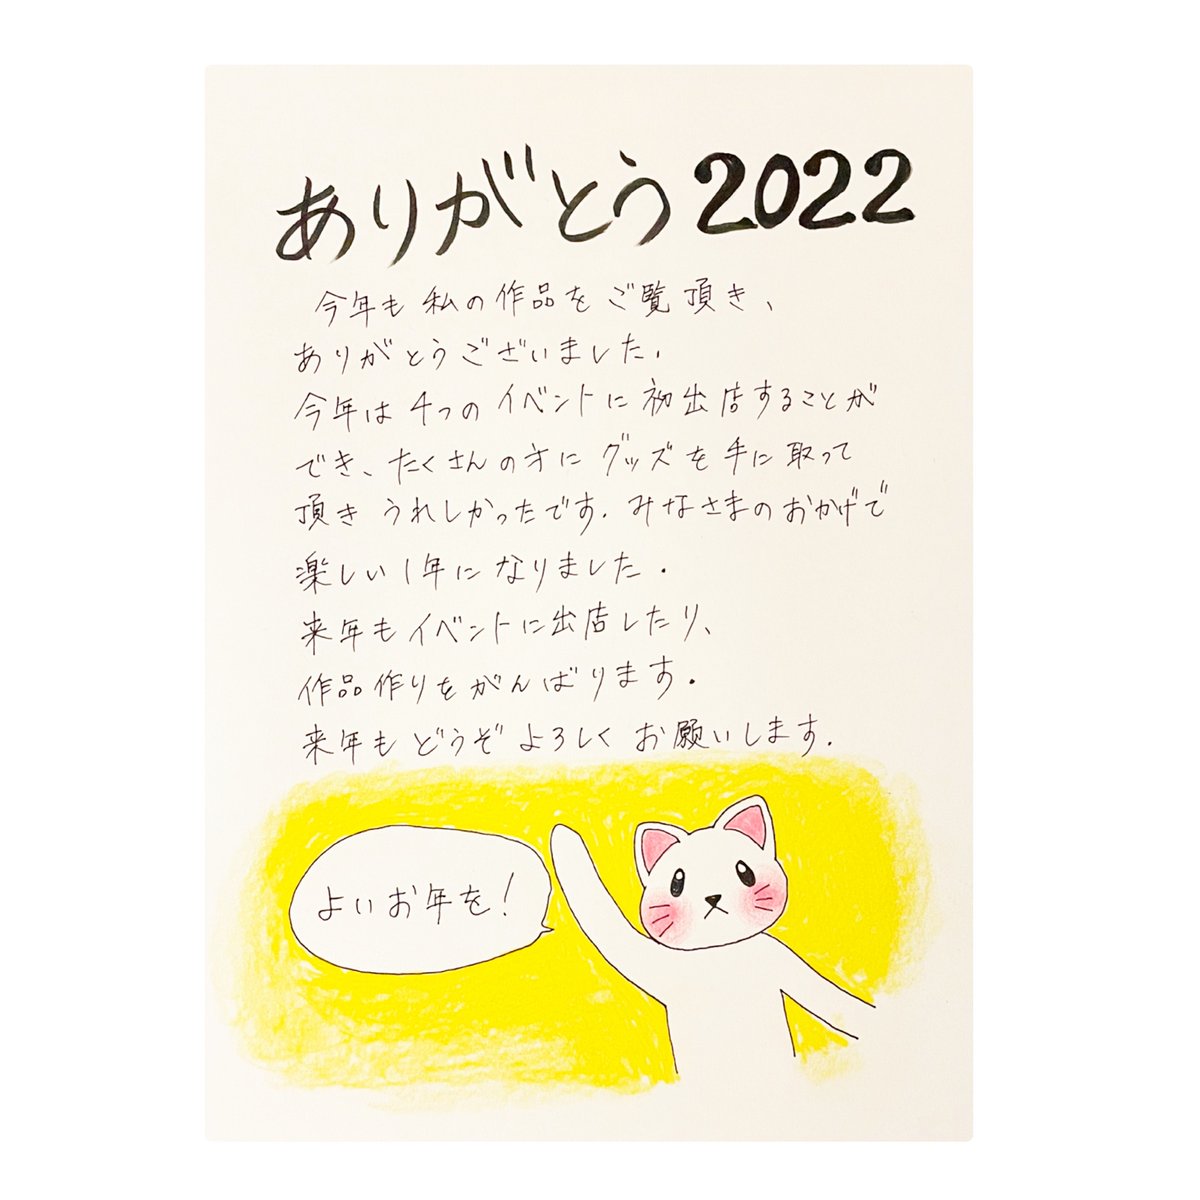 ありがとう2022
今年も私の作品をご覧頂き、
ありがとうございました.
今年は4つのイベントに初出店することが
でき、たくさんの方にグッズを手に取って
頂きうれしかったです. みなさまのおかげで
楽しい1年になりました.
来年もイベントに出店したり、
作品作りをがんばります.
来年もどうぞよろしくお願いします.
よいお年を!